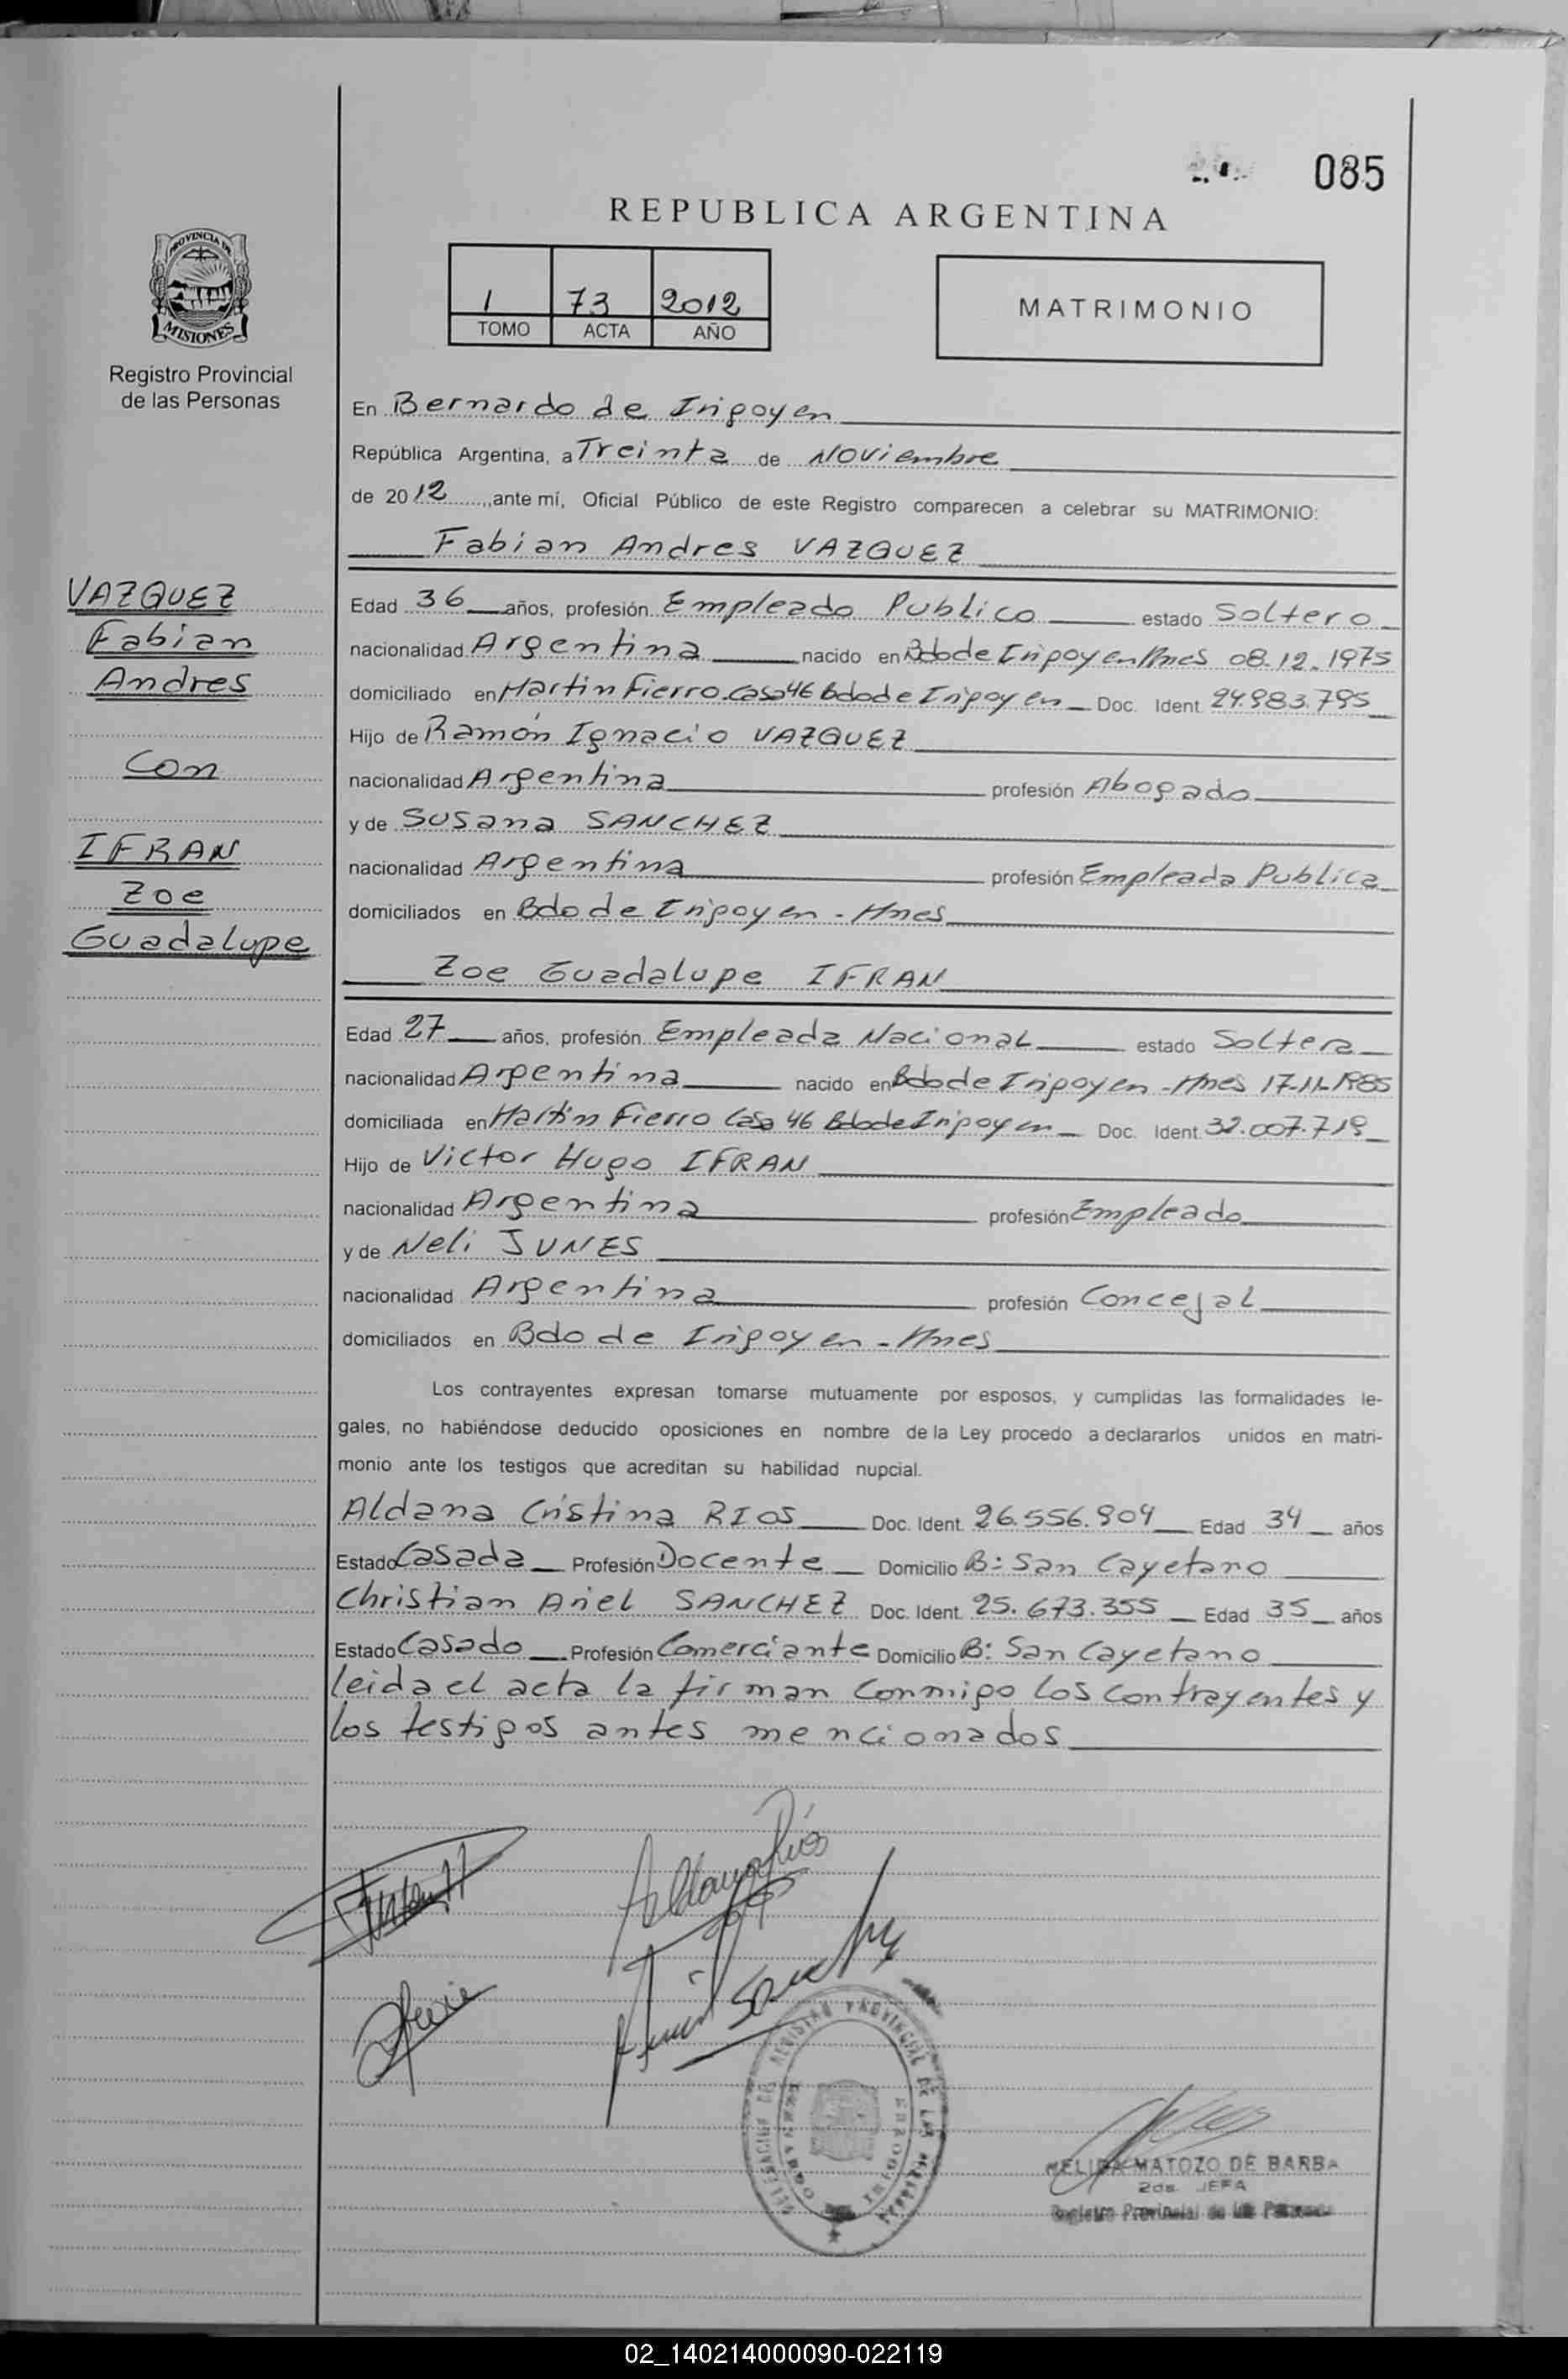 085
REPUBLICA ARGENTINA
PROVINCIA DE
MISIONES
Registro Provincial
de las Personas
1 73 2012
TOMO ACTA AÑO
MATRIMONIO
En Bernardo de Irigoyen
República Argentina, a Treinta de Noviembre
de 20 12 ,ante mí, Oficial Público de este Registro comparecen a celebrar su MATRIMONIO:
Fabian Andres VAZQUEZ
VAZQUEZ
Fabian
Andres
Con
IFRAN
Zoe
Guadalupe
Edad 36 años, profesión Empleado Publico estado Soltero
nacionalidad Argentina nacido en Bdo de Irigoyen Mnes 08.12.1975
domiciliado en Martin Fierro Casa 46 Bdo de Irigoyen Doc. Ident. 24.983.795
Hijo de Ramón Ignacio VAZQUEZ
nacionalidad Argentina profesión Abogado
y de Susana SANCHEZ
nacionalidad Argentina profesión Empleada Publica
domiciliados en Bdo de Irigoyen - Mnes
Zoe Guadalupe IFRAN
Edad 27 años, profesión Empleada Nacional estado Soltera
nacionalidad Argentina nacido en Bdo de Irigoyen - Mnes 17-11-1985
domiciliada en Martin Fierro Casa 46 Bdo de Irigoyen Doc. Ident. 32.007.719
Hijo de Victor Hugo IFRAN
nacionalidad Argentina profesión Empleado
y de Neli JUNES
nacionalidad Argentina profesión Concejal
domiciliados en Bdo de Irigoyen - Mnes
Los contrayentes expresan tomarse mutuamente por esposos, y cumplidas las formalidades le-
gales, no habiéndose deducido oposiciones en nombre de la Ley procedo a declararlos unidos en matri-
monio ante los testigos que acreditan su habilidad nupcial.
Aldana Cristina RIOS Doc. Ident. 26.556.904 Edad 34 años
Estado Casada Profesión Docente Domicilio B: San Cayetano
Christian Ariel SANCHEZ Doc. Ident. 25.673.355 Edad 35 años
Estado Casado Profesión Comerciante Domicilio B: San Cayetano
leida el acta la firman conmigo los contrayentes y
los testigos antes mencionados
Aldana Ríos
NELIDA MATOZO DE BARBA
2da. JEFA
Registro Provincial de las Personas
02_140214000090-022119